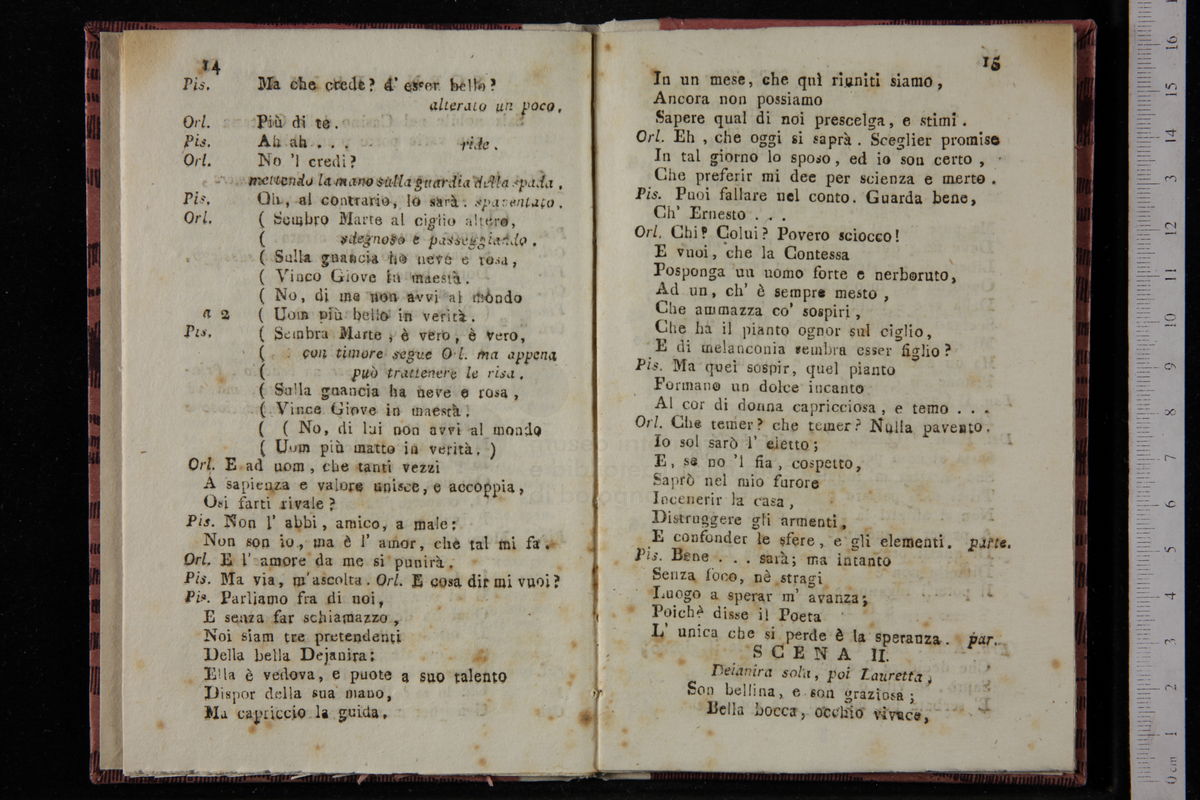 14
Pis. Ma che crede? d' esser bello?
alterato un poco.
Orl. Più di te.
Pis. Ah ah . . . ride.
Orl. No 'l credi?
mettendo la mano sulla guardia della spada.
Pis. Oh, al contrario, lo sarà. spaventato.
Orl. ( Sembro Marte al ciglio altero,
( sdegnoso e passeggiando.
( Sulla guancia ho neve e rosa,
( Vinco Giove in maestà.
( No, di me non avvi al mondo
a 2 ( Uom più bello in verità.
Pis. ( Sembra Marte, è vero, è vero,
( con timore segue Orl. ma appena
( può trattenere le risa.
( Sulla guancia ha neve e rosa,
( Vince Giove in maestà.
( ( No, di lui non avvi al mondo
( Uom più matto in verità. )
Orl. E ad uom, che tanti vezzi
A sapienza e valore unisce, e accoppia,
Osi farti rivale?
Pis. Non l' abbi, amico, a male:
Non son io, ma è l' amor, che tal mi fa.
Orl. E l' amore da me si punirà.
Pis. Ma via, m'ascolta. Orl. E cosa dirmi vuoi?
Pis. Parliamo fra di noi,
E senza far schiamazzo,
Noi siam tre pretendenti
Della bella Dejanira:
Ella è vedova, e puote a suo talento
Dispor della sua mano,
Ma capriccio la guida.
15
In un mese, che quì riuniti siamo,
Ancora non possiamo
Sapere qual di noi prescelga, e stimi.
Orl. Eh, che oggi si saprà. Sceglier promise
In tal giorno lo sposo, ed io son certo,
Che preferir mi dee per scienza e merto.
Pis. Puoi fallare nel conto. Guarda bene,
Ch' Ernesto . . .
Orl. Chi? Colui? Povero sciocco!
E vuoi, che la Contessa
Posponga un uomo forte e nerboruto,
Ad un, ch' è sempre mesto,
Che ammazza co' sospiri,
Che ha il pianto ognor sul ciglio,
E di melanconia sembra esser figlio?
Pis. Ma quei sospir, quel pianto
Formano un dolce incanto
Al cor di donna capricciosa, e temo . . .
Orl. Che temer? che temer? Nulla pavento.
Io sol sarò l' eletto;
E, se no 'l fia, cospetto,
Saprò nel mio furore
Incenerir la casa,
Distruggere gli armenti,
E confonder le sfere, e gli elementi. parte.
Pis. Bene . . . sarà; ma intanto
Senza foco, nè stragi
Luogo a sperar m' avanza;
Poichè disse il Poeta
L' unica che si perde è la speranza. par.
SCENA II.
Deianira sola, poi Lauretta.
Son bellina, e son graziosa;
Bella bocca, occhio vivace,